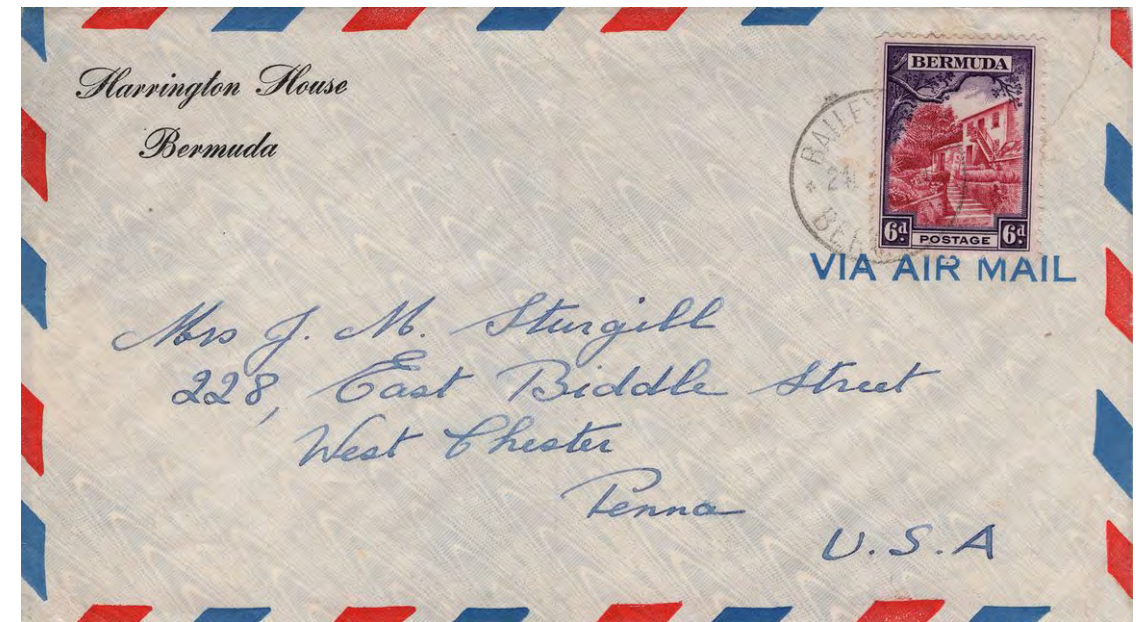 Harrington House
Bermuda
BERMUDA
6d POSTAGE 6d
VIA AIR MAIL
Mrs J. M. Sturgill
228, East Biddle Street
West Chester
Penna
U.S.A